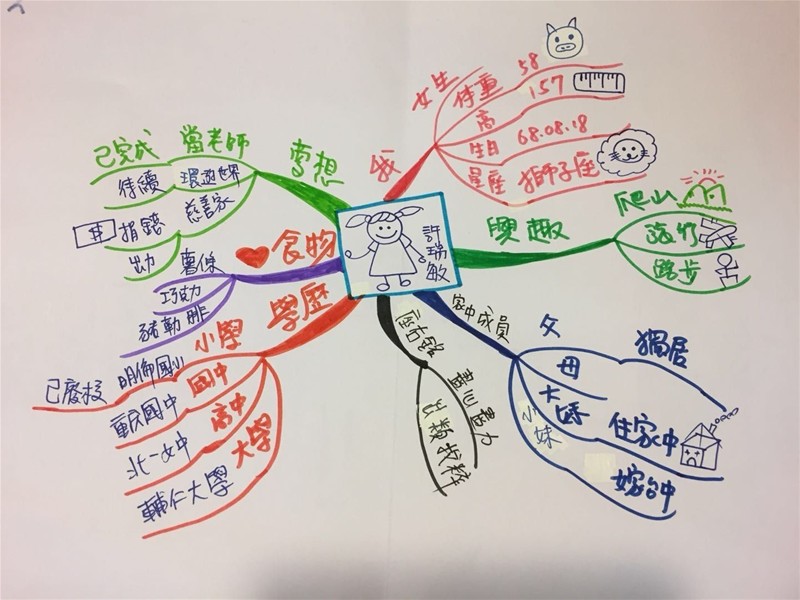 許瑞敏
我
女生
体重
58
高
157
生日
68.08.18
星座
獅子座
興趣
爬山
旅行
跑步
家中成員
父
獨居
母
大妹
住家中
小妹
嫁台中
座右銘
盡心盡力
出類拔粹
學歷
小學
明倫國小
已廢校
國中
重慶國中
高中
北一女中
大學
輔仁大學
食物
薯條
巧克力
夢想
當老師
已完成
環遊世界
待續
慈善家
捐錢